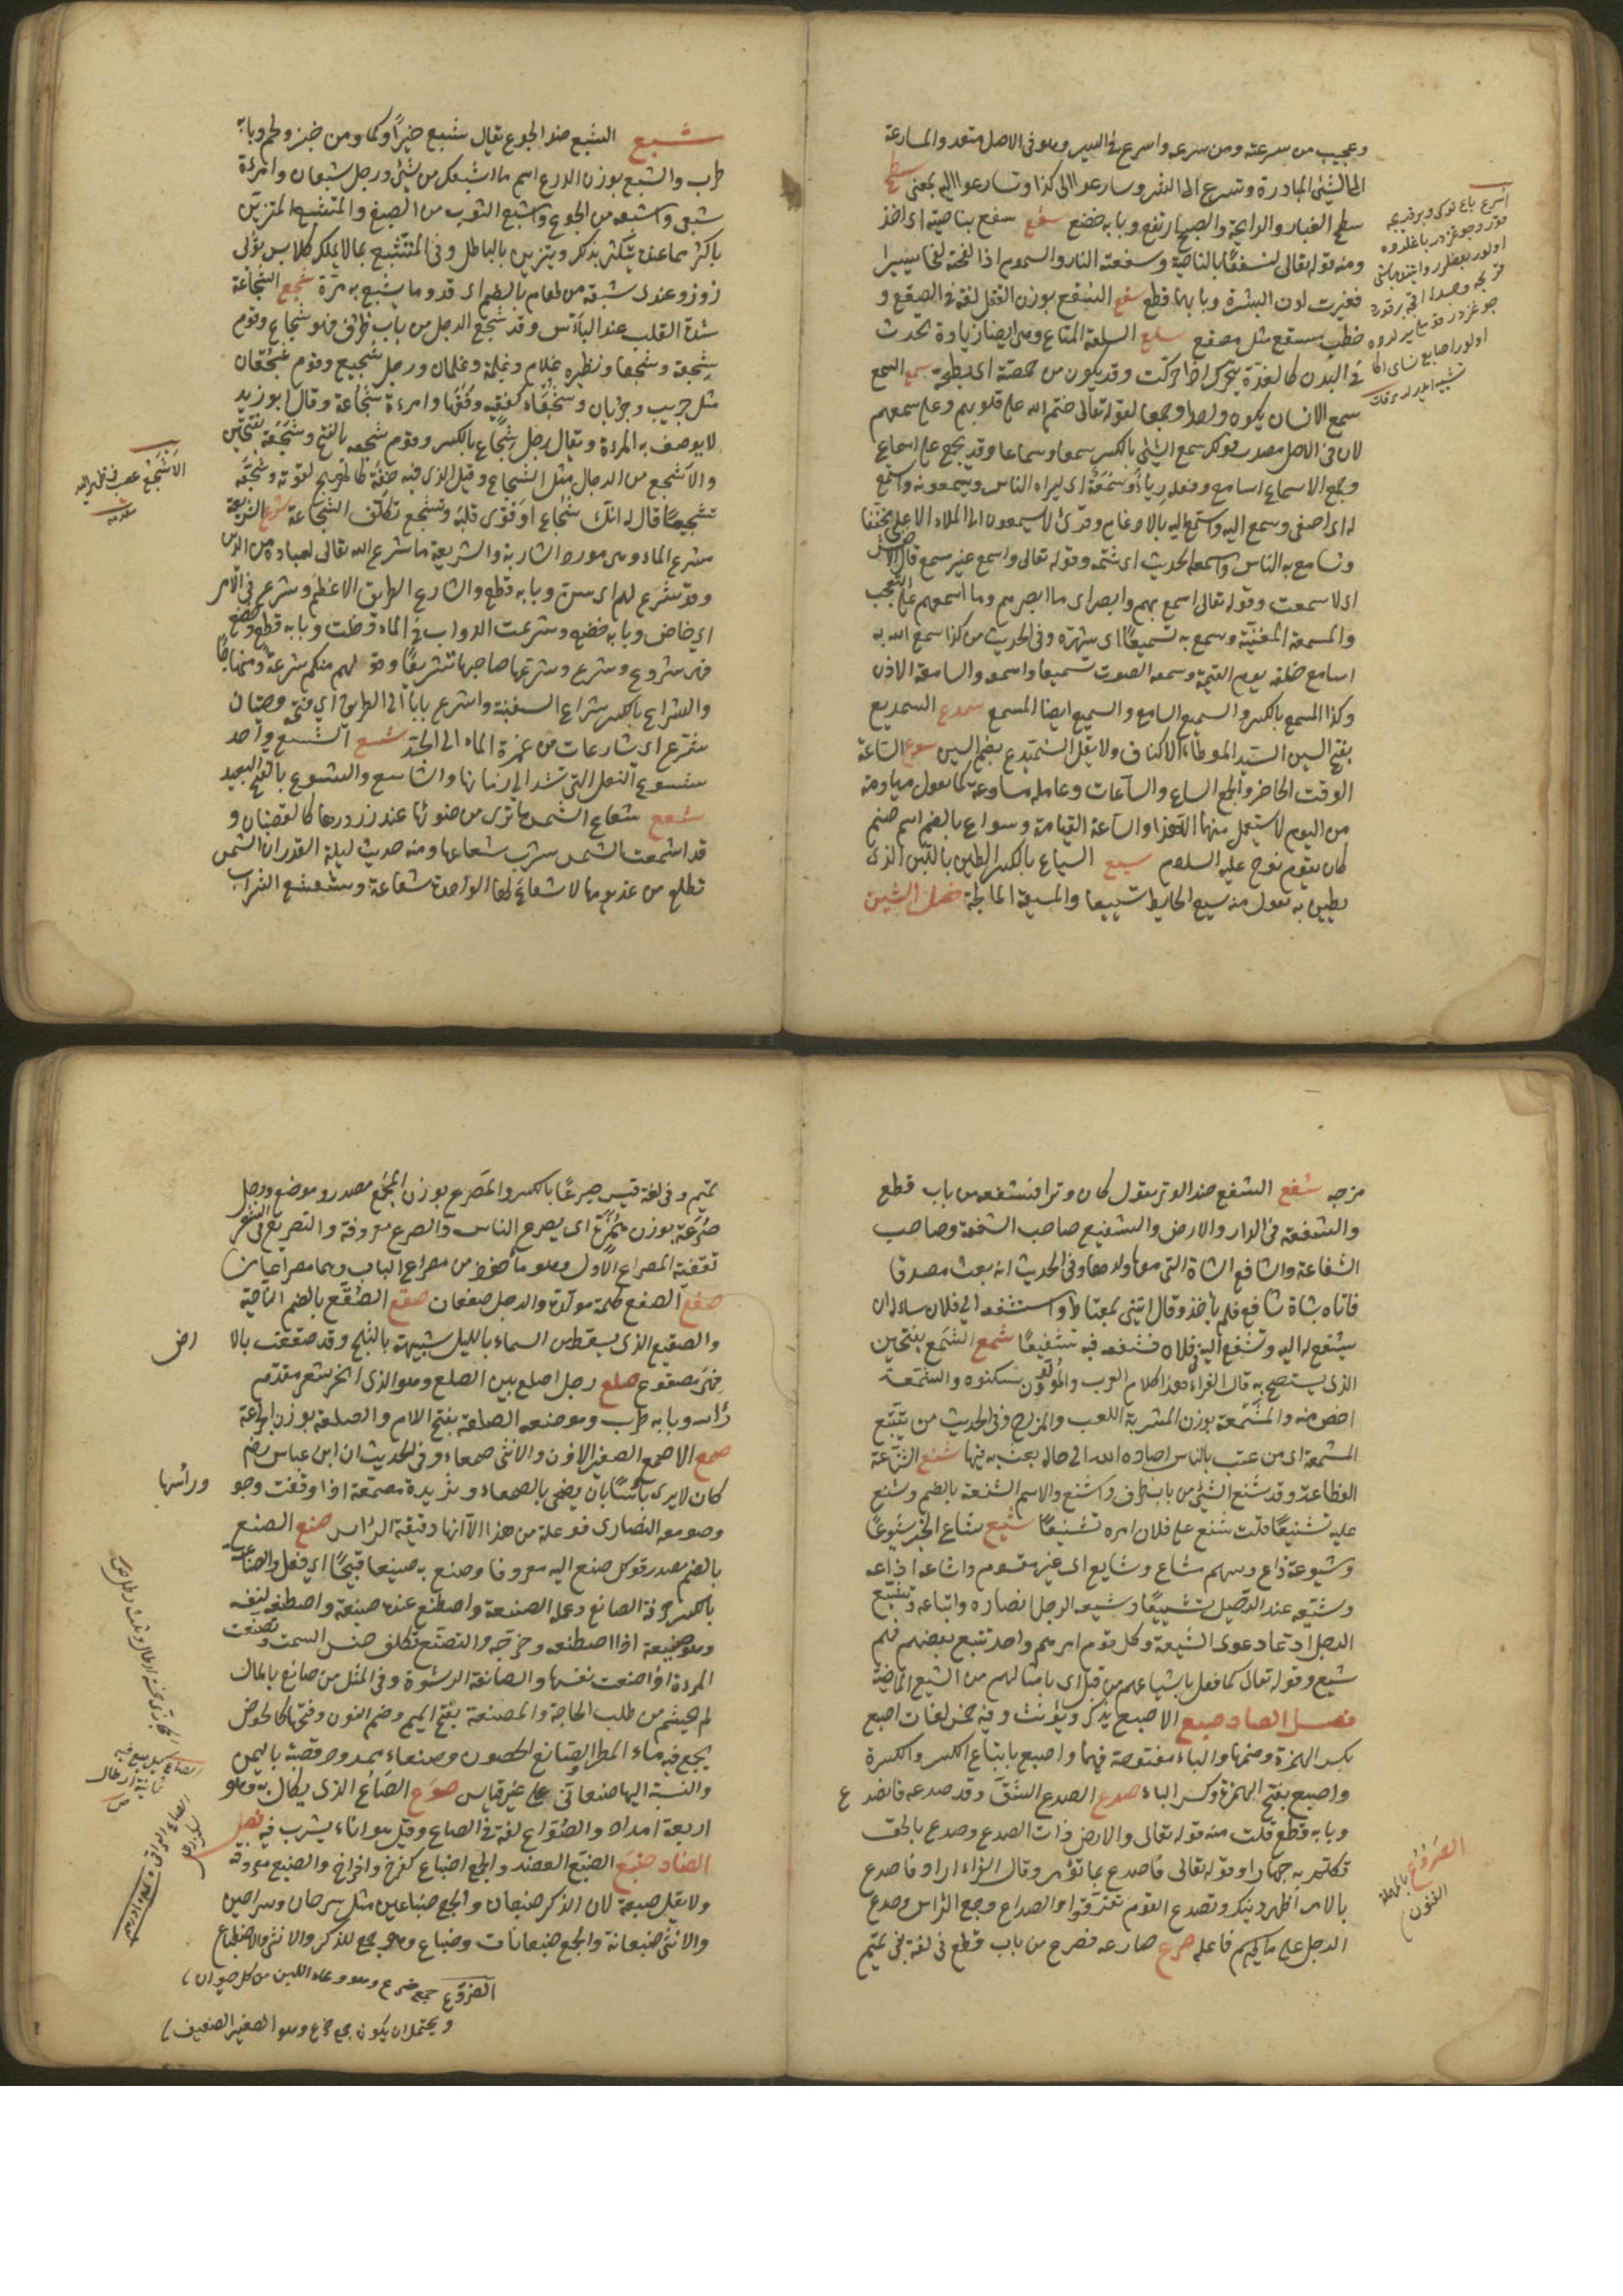 وعجبت من سرعته ومن سرعه واسرع فى السير وهو فى الاصل متعد والمسارعة
الى الشئ المبادرة وتسرع الى الشر وسارعوا الى كذا وتسارعوا اليه بمعنى سطع
سطع الغبار والرايحة والصبح ارتفع وبابه خضع سفع سفع بناصيته اى اخذ
ومنه قوله تعالى لنسفعًا بالناصية وسفعته النار والسموم اذا لفحته لفحا يسيرا
فغيرت لون البشرة وبابهما قطع سقع السقع بوزن القفل لغة فى الصقع و
خطيب مسقع مثل مصقع سلع السلعة المتاع وهى ايضا زيادة تحدث
فى البدن كالغدة تتحرك اذا حركت وقد يكون من حمصة الى بطيخة سمع السمع
سمع الانسان يكون واحدا وجمعا لقوله تعالى ختم الله على قلوبهم وعلى سمعهم
لان فى الاصل مصدر قولك سمع الشئ بالكسر سمعا وسماعا وقد يجمع على اسماع
وجمع الاسماع اسامع وفعله رياءً وسُمْعَةً اى ليراه الناس ويسمعونه واستمع
له اى اصغى وسمع اليه واستمع اليه بالادغام وقرئ لا يسمعون الى الملاء الاعلى مخففا
وتسامع به الناس واسمعه الحديث اى شتمه وقوله تعالى واسمع غير مسمع قال الاخفش
اى لا سمعت وقوله تعالى اسمع بهم وابصر اى ما ابصرهم وما اسمعهم على التعجب
والمسمعة المغنية وسمع به تسميعًا اى شهّره وفى الحديث من كذا سمع الله به
اسامع خلقه يوم القيمة وسمعه الصوت تسميعا واسمعه والسامعة الاذن
وكذا المسمع بالكسر والسميع السامع والسميع ايضا المسمع سمدع السميدع
بفتح السين السيد الموطأ الاكناف ولا يقل السُميدع بضم السين سوع الساعة
الوقت الحاضر والجمع الساع والساعات وعامله مساوعة كما تقول مياومة
من اليوم لا يستعمل منهما الا هذا والساعة القيامة وسواع بالضم اسم صنم
كان لقوم نوح عليه السلام سيع السياع بالكسر الطين بالتبن الذى
يطين به تقول منه سيع الحايط تسييعا والمسيعة المالجة فصل الشين
شبع الشبع ضد الجوع يقال شبع خبزًا ولحما ومن خبز ولحم وبابه
طرب والشبع بوزن الدرع اسم ما اشبعك من شئ ورجل شبعان وامرءة
شبعى واشبعه من الجوع واشبع الثوب من الصبغ والمتشبع المتزين
باكثر مما عنده يتكثر بذلك ويتزين بالباطل وفى المتشبع بما لا يملك كلابس ثوبى
زور وعندى شبعة من طعام بالضم اى قدر ما يشبع به مرة شجع الشجاعة
شدة القلب عند البأس وقد شجع الرجل من باب ظرف فهو شجاع وقوم
شجعة وشجعان ونظيره غلام وغلمة وغلمان ورجل شجيع وقوم شجعان
مثل جريب وجربان وشجعاء كفقيه وفقهاء وامرءة شجاعة وقال ابو زيد
لا يوصف به المراة ويقال رجل شجاع بالكسر وقوم شجعه بالفتح وشجعة بفتحتين
والاشجع من الرجال مثل الشجاع وقيل الذى فيه خفة كالهوج لقوته وشجعه
تشجيعًا قال له انك شجاع او قوى قلبه وتشجع تكلف الشجاعة شرع الشريعة
مشرع الماء وهى مورد الشاربة والشريعة ما شرع الله تعالى لعباده من الدين
وقد شرع لهم اى سن وبابه قطع والشارع الطريق الاعظم وشرع فى الامر
اى خاض وبابه خضع وشرعت الدواب فى الماء دخلت وبابه قطع وخضع
فهى شروع وشرع وشرعها صاحبها تشريعًا وقوله لهم منكم شرعة ومنهاجًا
والشراع بالكسر شراع السفينة واشرع بابًا الى الطريق اى فتحه وحيتان
شرع اى شارعات من غمرة الماء الى الجد شسع الشسع واحد
شسوع النعل التى تشد الى زمامها والشاسع والشسوع بالفتح البعيد
شعع شعاع الشمس ما ترى من ضوئها عند ذرورها كالقضبان و
قد اشعت الشمس نشرت شعاعها ومنه حديث ليلة القدر ان الشمس
تطلع من غد يومها لا شعاع لها الواحدة شعاعة وشعشع الشراب
الاَشْجَعُ عصب فى ظهر اليد
مزجه شفع الشفع ضد الوتر يقول كان وترا فشفعه من باب قطع
والشفعة فى الدار والارض والشفيع صاحب الشفعة وصاحب
الشفاعة والشافع الشاة التى معها ولدها وفى الحديث انه بعث مصدقا
فاتاه بشاة شافع فلم ياخذ وقال ائتنى بمعتاط واستشفعه الى فلان سأله ان
يشفع له اليه وتشفع اليه فى فلان فشفعه فيه تشفيعًا شمع الشمع بفتحتين
الذى يستصبح به قال الفراء هذا كلام العرب والمولدون يسكنونه والشمعة
اخص منه والمشمعة بوزن المشربة اللعب والمزاح وفى الحديث من يتتبع
المشمعة اى من عبث بالناس اصاره الله الى حالة يعبث به فيها شنع الشناعة
الفظاعة وقد شنع الشئ من باب ظرف واشنع والاسم الشنعة بالضم وشنع
عليه تشنيعًا قلت شنع على فلان امره تشنيعًا شيع شاع الخبر شيوعًا
وشيوعة ذاع وسهم مشاع وشايع اى غير مقسوم واشاعه اذاعه
وشيعه عند الرحيل تشييعًا وشيعه الرجل انصاره واتباعه وتشيع
الرجل ادعا دعوى الشيعة وكل قوم امرهم واحد يتبع بعضهم فهم
شيع وقوله تعالى كما فعل باشياعهم من قبل اى بامثالهم من الشيع الماضية
فصل الصاد صبع الاصبع يذكر ويؤنث وفيه خمس لغات اصبع
بكسر الهمزة وضمها والباء مفتوحة فيهما واصبع باتباع الكسر والكسرة
واصبع بفتح الهمزة وكسر الباء صدع الصدع الشق وقد صدعه فانصدع
وبابه قطع قلت منه قوله تعالى والارض ذات الصدع وصدع بالحق
تكلم به جهارا وقوله تعالى فاصدع بما تؤمر وقال الفراء اراد فاصدع
بالامر اظهر دينك وتصدع القوم تفرقوا والصداع وجع الراس وصدع
الرجل على ما لم يسم فاعله صرع صارعه فصرعه من باب قطع فى لغة بنى تميم
تميم وفى لغة قيس صرعًا بالكسر والمصرع بوزن المجمع مصدر وموضع ورجل
صُرَعَة بوزن هُمَزَة اى يصرع الناس والصرع معروفة والتصريع فى الشعر
تقفية المصراع الاول وهو ماخوذ من مصراع الباب وهما مصراعان
صفع الصفع كلمة مولدة والرجل صفعان صقع الصقع بالضم الناحية
والصقيع الذى يسقط من السماء بالليل شبيهة بالثلج وقد صقعت بالا رض
فهى مصقوع صلع رجل اصلع بين الصلع وهو الذى انحسر شعر مقدم
راسه وبابه طرب وموضعه الصلعة بفتح اللام والصلعة بوزن الجرعة
صمع الاصمع الصغير الاذن والانثى صمعاء وفى الحديث ان ابن عباس رضم
كان لا يرى باسًا بان يضحى بالصمعاء وثريدة مصمعة اذا دققت وحد ورأسها
وصومع النصارى فوعلة من هذا الانها دقيقة الراس صنع الصنع
بالضم مصدر قولك صنع اليه معروفا وصنع به صنيعا قبيحًا اى فعل والصناعة
بالكسر حرفة الصانع وعمله الصنعة واصطنع عنده صنيعة واصطنعه لنفسه
وهو صنيعة اذا اصطنعه وخرجه والتصنع تكلف حسن السمت وتصنعت
المرءة اذا صنعت نفسها والمصانعة الرشوة وفى المثل من صانع بالمال
لم يحتشم من طلب الحاجة والمصنعة بفتح الميم وضم النون وفتحها كالحوض
يجمع فيه ماء المطر والمصانع الحصون وصنعاء ممدود قصبة باليمن
والنسبة اليها صنعانى على غير قياس صوع الصاع الذى يكال به وهو
اربعة امداد والصُوَاع لغة فى الصاع وقيل هو اناء يشرب فيه فصل
الضاد ضبع الضبع العضد والجمع اضباع كفرخ وافراخ والضبع معروفة
ولا يقل ضبعة لان الذكر ضبعان والجمع ضباعين مثل سرحان وسراحين
والانثى ضبعانة والجمع ضبعانات وضباع وهو جمع للذكر والانثى والاضطباع
الضروع جمع ضرع وهو وعاء اللبن من كل حيوان
ويحتمل ان يكون جمع ضرع وهو الصغير الضعيف